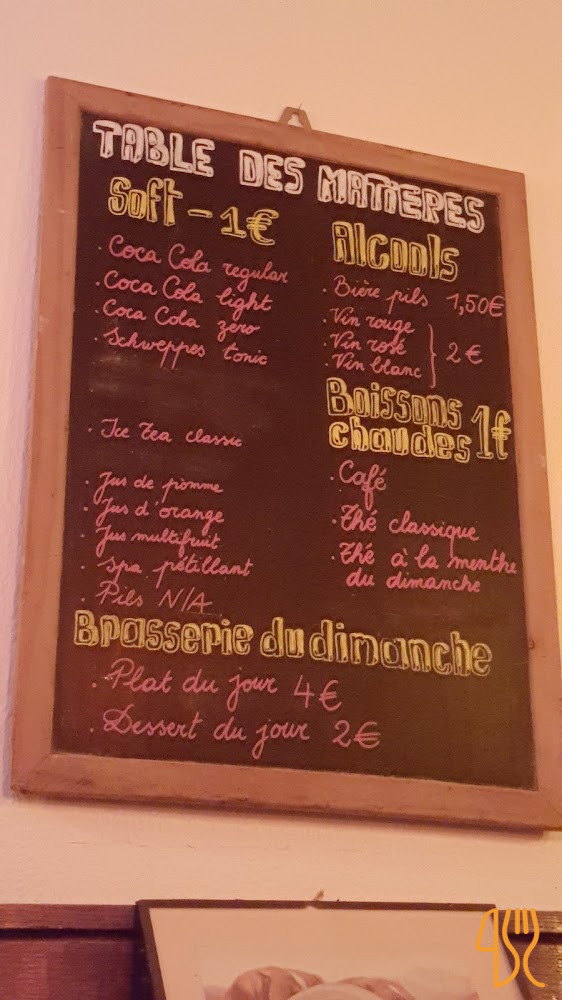 TABLE DES MATIERES
Soft - 1€
. Coca Cola regular
. Coca Cola light
. Coca Cola zero
. Schweppes tonic
. Ice Tea classic
. Jus de pomme
. Jus d'orange
. Jus multifruit
. Spa pétillant
. Pils N/A
Alcools
. Bière pils 1,50€
. Vin rouge
. Vin rosé
. Vin blanc
} 2€
Boissons
chaudes 1€
. Café
. Thé classique
. Thé à la menthe
du dimanche
Brasserie du dimanche
. Plat du jour 4€
. Dessert du jour 2€